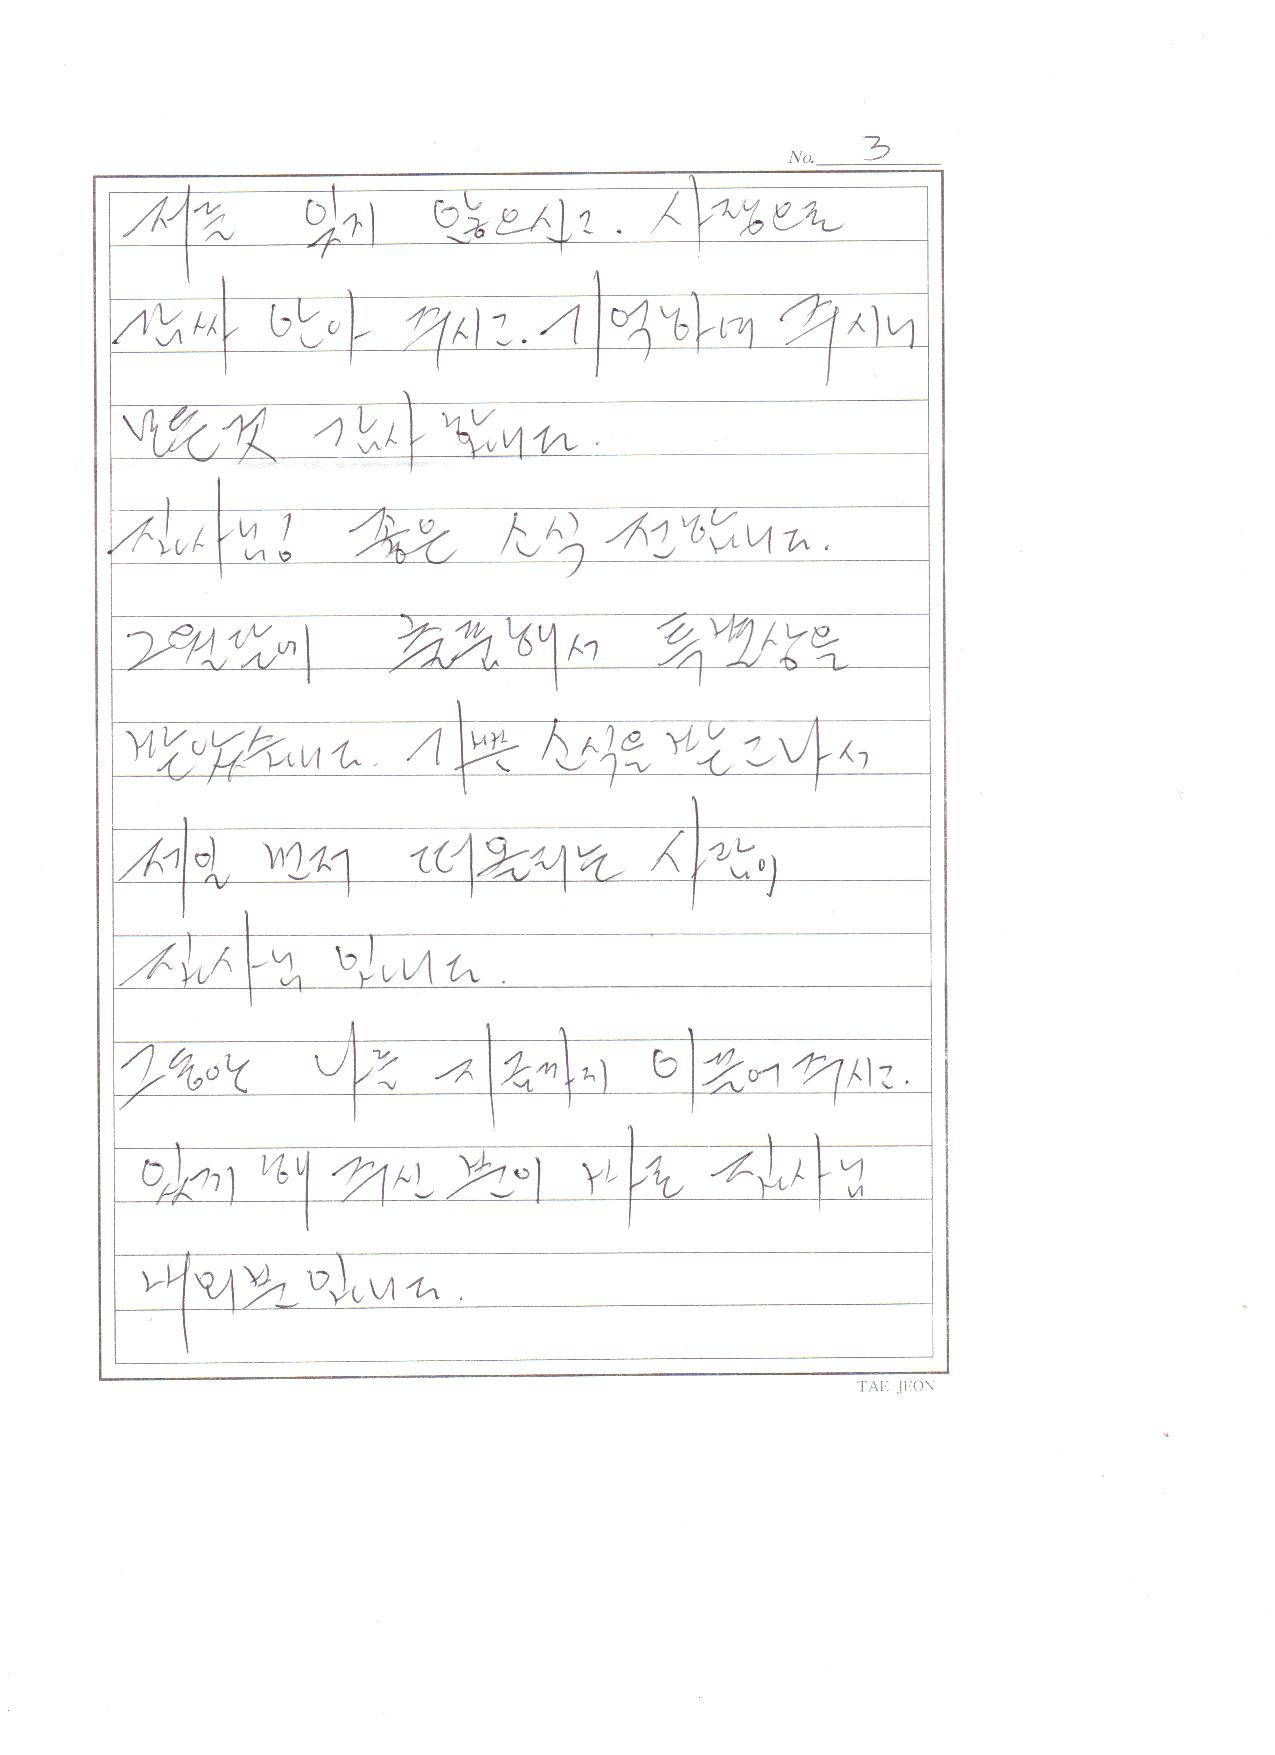 No. 3
저를 잊지 않으시고. 사랑으로
감싸 안아 주시고. 기억하여 주시니
모든것 감사 합니다.
집사님! 좋은 소식 전합니다.
2월달에 출품해서 특별상을
받았습니다. 기쁜 소식을 받고나서
제일 먼저 떠올리는 사람이
집사님 입니다.
그동안 나를 지금까지 이끌어 주시고.
있게 해 주신 분이 바로 집사님
내외분 입니다.
TAE JEON